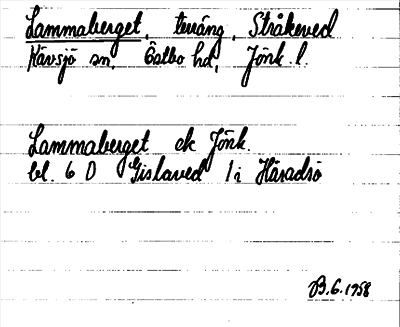 Lammaberget, terräng, Stråkeved
Kävsjö sn, Östbo hd, Jönk. l.
Lammaberget ek Jönk.
bl. 6 D Gislaved 1i Häradsö
B.G. 1958